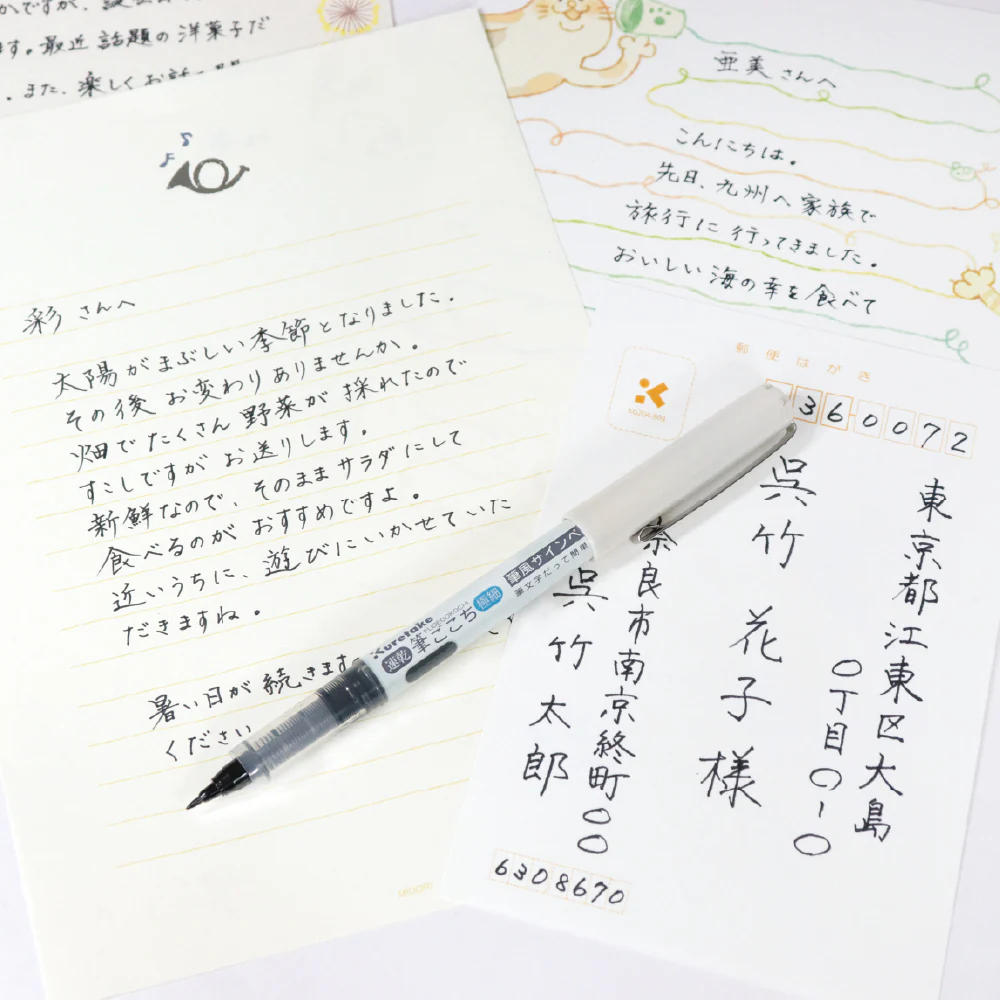 す。最近話題の洋菓子だ
。また、楽しくお話
彩さんへ
太陽がまぶしい季節となりました。
その後お変わりありませんか。
畑でたくさん野菜が採れたので
すこしですがお送りします。
新鮮なので、そのままサラダにして
食べるのがおすすめですよ。
近いうちに、遊びにいかせていた
だきますね。
暑い日が続きます
ください
MIDORI
亜美さんへ
こんにちは。
先日、九州へ家族で
旅行に行ってきました。
おいしい海の幸を食べて
郵便はがき
360072
東京都江東区大島
〇丁目〇-〇
呉竹花子様
奈良市南京終町〇〇
呉竹太郎
6308670
Kuretake
速乾
筆ごこち
FUDEGOKOCHI
極細
筆風サインペン
筆文字だって簡単